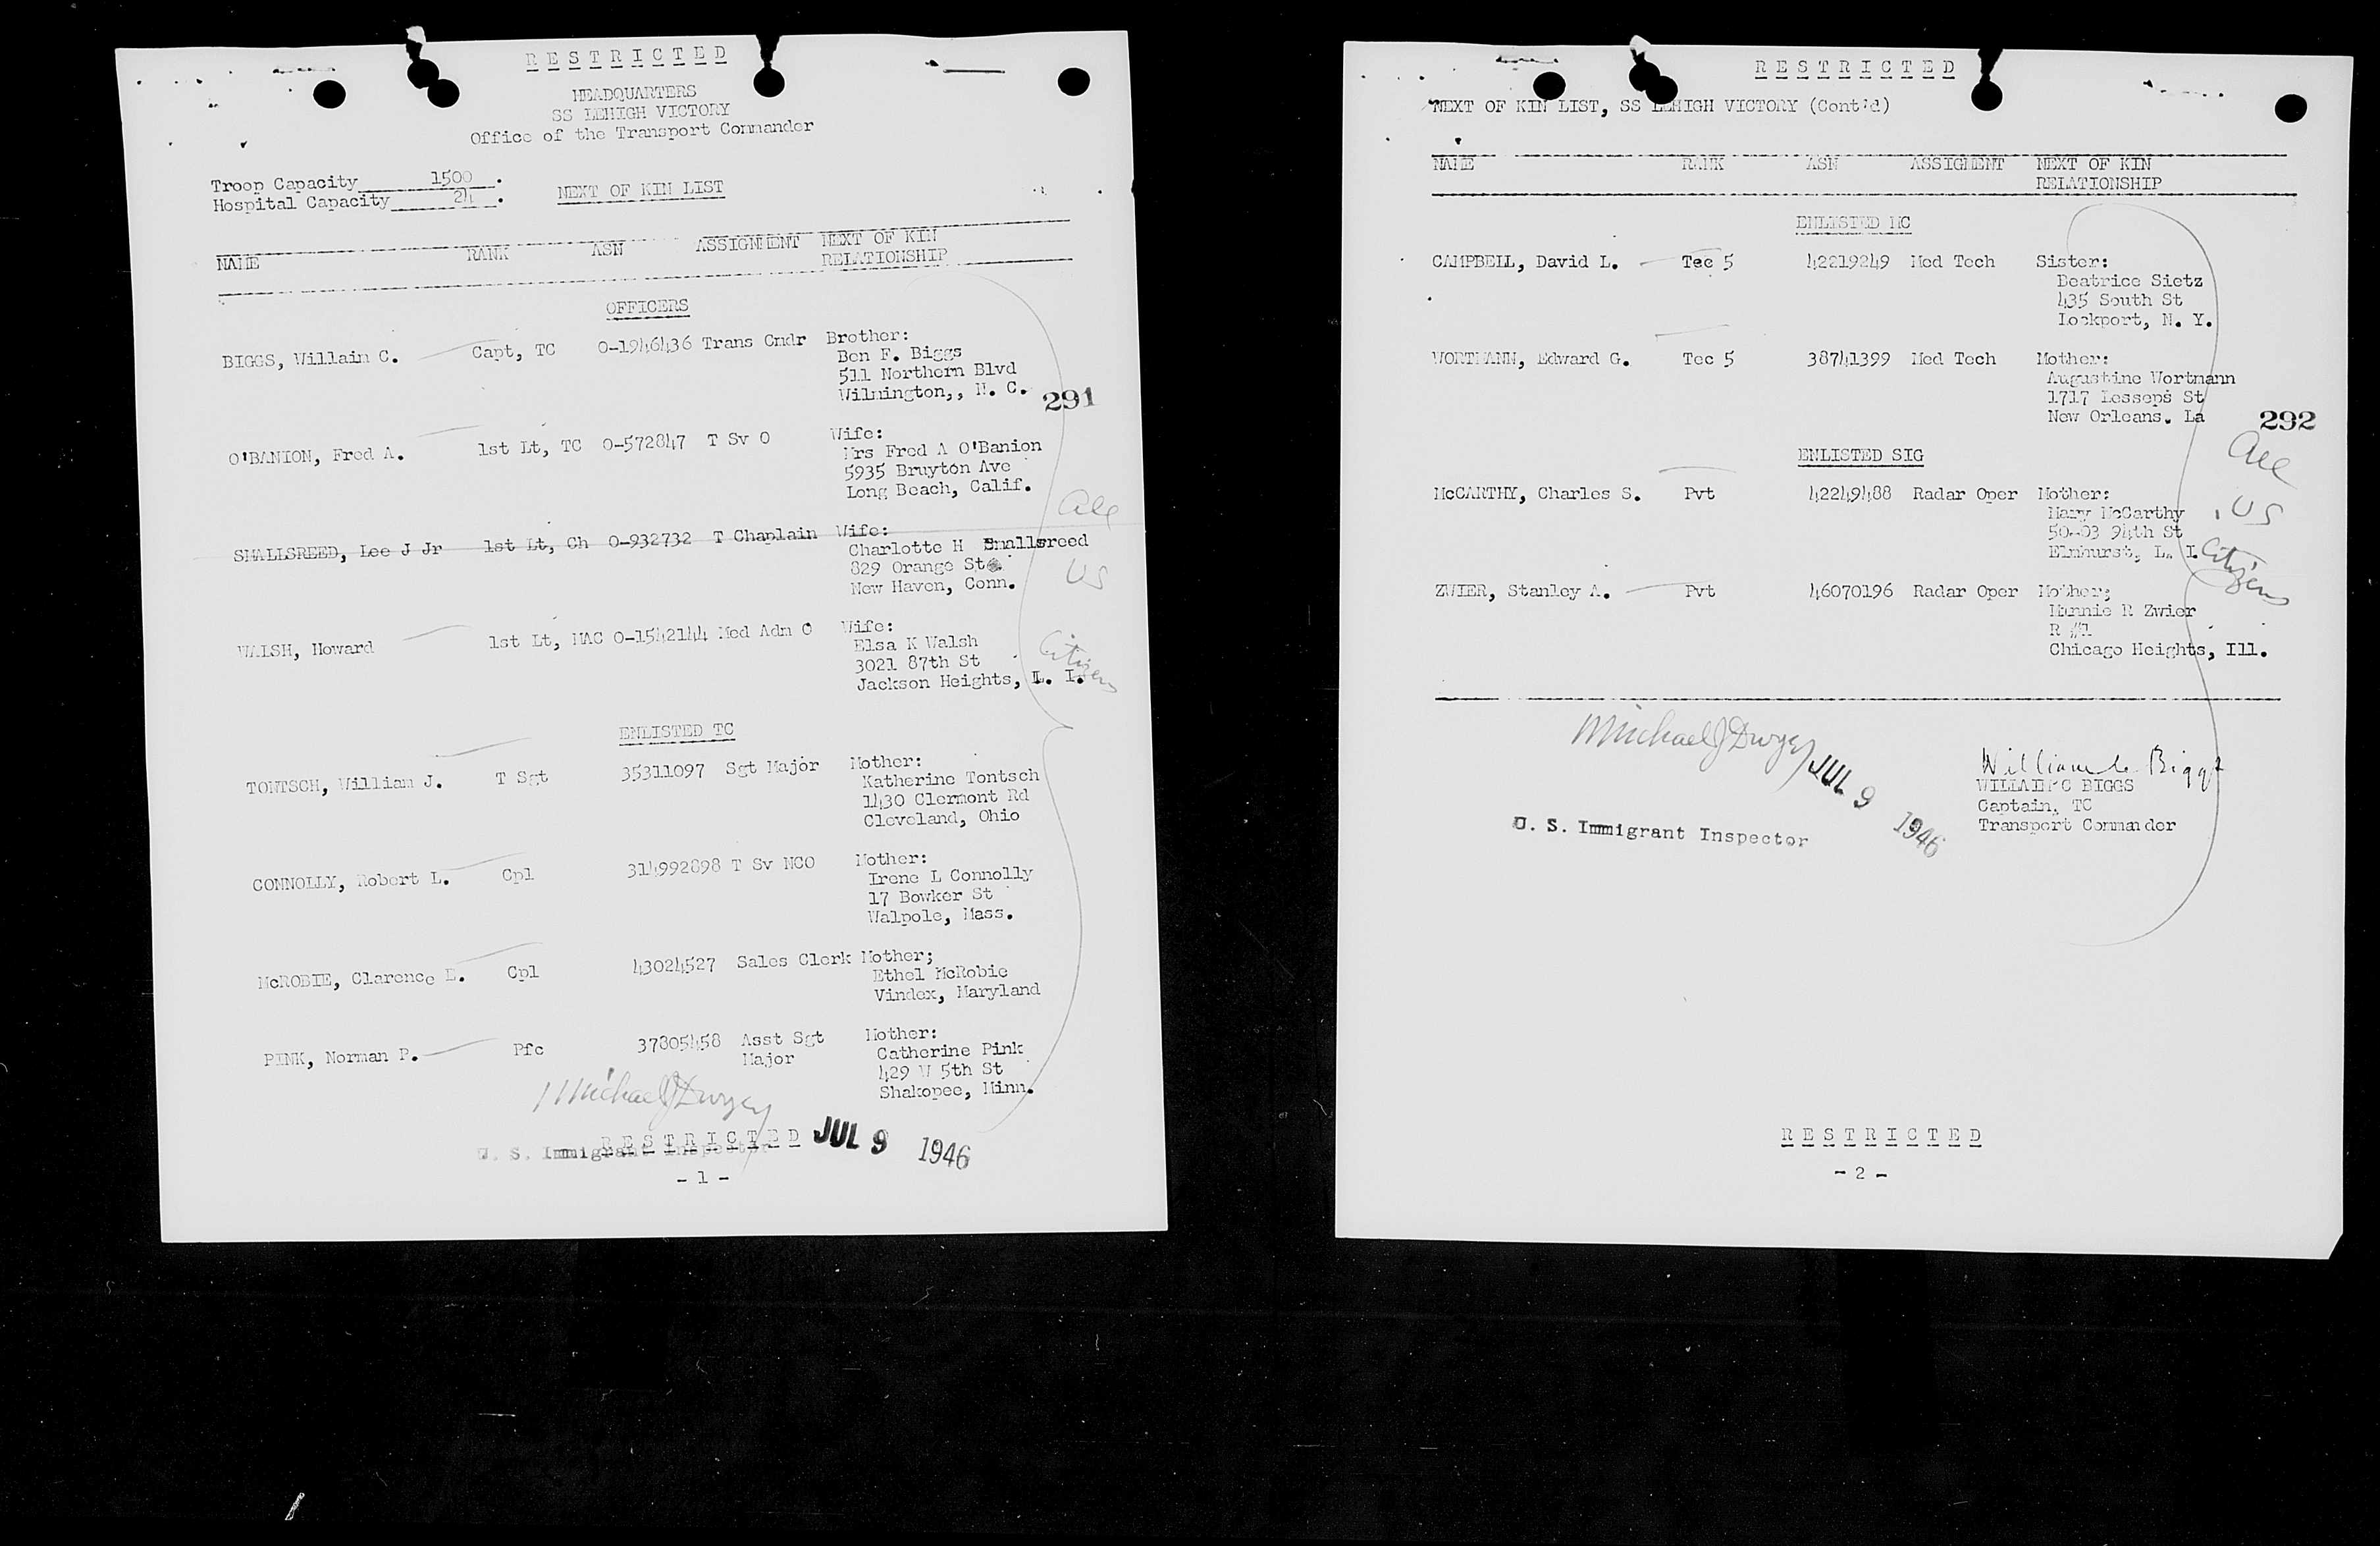 RESTRICTED
HEADQUARTERS
SS LEHIGH VICTORY
Office of the Transport Commander
Troop Capacity 1500.
Hospital Capacity 24.
NEXT OF KIN LIST
NAME RANK ASN ASSIGNMENT NEXT OF KIN
RELATIONSHIP
OFFICERS
BIGGS, Willain C. Capt, TC O-1946436 Trans Cmdr Brother:
Ben F. Biggs
511 Northern Blvd
Wilmington,, N. C.
291
O'BANION, Fred A. 1st Lt, TC O-572847 T Sv O Wife:
Mrs Fred A O'Banion
5935 Bruyton Ave
Long Beach, Calif.
All
SMALLSREED, Lee J Jr 1st Lt, Ch O-932732 T Chaplain Wife:
Charlotte H Smallsreed
829 Orange St
New Haven, Conn.
US
WALSH, Howard 1st Lt, MAC O-1542144 Med Adm O Wife:
Elsa K Walsh
3021 87th St
Jackson Heights, L. I.
Citizens
ENLISTED TC
TONTSCH, William J. T Sgt 35311097 Sgt Major Mother:
Katherine Tontsch
1430 Clermont Rd
Cleveland, Ohio
CONNOLLY, Robert L. Cpl 314992898 T Sv NCO Mother:
Irene L Connolly
17 Bowker St
Walpole, Mass.
McROBIE, Clarence E. Cpl 43024527 Sales Clerk Mother;
Ethel McRobie
Vindex, Maryland
PINK, Norman P. Pfc 37805458 Asst Sgt Mother:
Major Catherine Pink
429 W 5th St
Shakopee, Minn.
Michael J Dwyer
RESTRICTED JUL 9 1946
U. S. Immigrant Inspector
- 1 -
RESTRICTED
NEXT OF KIN LIST, SS LEHIGH VICTORY (Cont'd)
NAME RANK ASN ASSIGMENT NEXT OF KIN
RELATIONSHIP
ENLISTED MC
CAMPBELL, David L. Tec 5 42219249 Med Tech Sister:
Beatrice Sietz
435 South St
Lockport, N. Y.
WORTMANN, Edward G. Tec 5 38741399 Med Tech Mother:
Augustine Wortmann
1717 Lesseps St
New Orleans. La
292
All
ENLISTED SIG
McCARTHY, Charles S. Pvt 42249488 Radar Oper Mother:
Mary McCarthy
50-03 94th St
Elmhurst, L. I.
US
Citizens
ZWIER, Stanley A. Pvt 46070196 Radar Oper Mother;
Minnie R Zwier
R #1
Chicago Heights, Ill.
Michael J Dwyer
JUL 9 1946
U. S. Immigrant Inspector
William C Biggs
WILLAIM C BIGGS
Captain, TC
Transport Commander
RESTRICTED
- 2 -